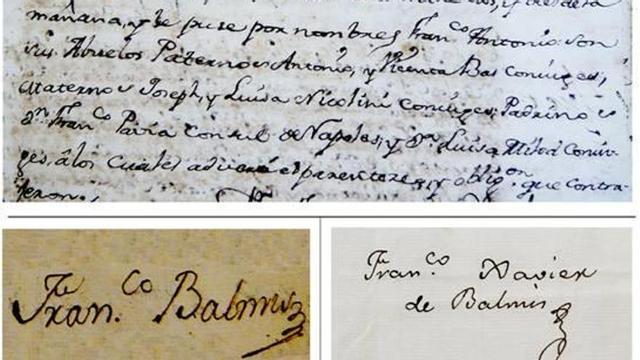 mañana, y se puse por nombres Fran.co Antonio: son
sus Abuelos Paternos Antonio, y Vicenta Bas Conjuges;
Maternos Joseph, y Luisa Nicolini conjuges: Padrinos
Dn. Fran.co Pavia Consul de Napoles, y Da. Luisa Mitri Conju-
ges, â los cuales adverti el parentezco, y oblig.on que contra-
xeron.
Fran.co Balmis
Fran.co Xavier
de Balmis